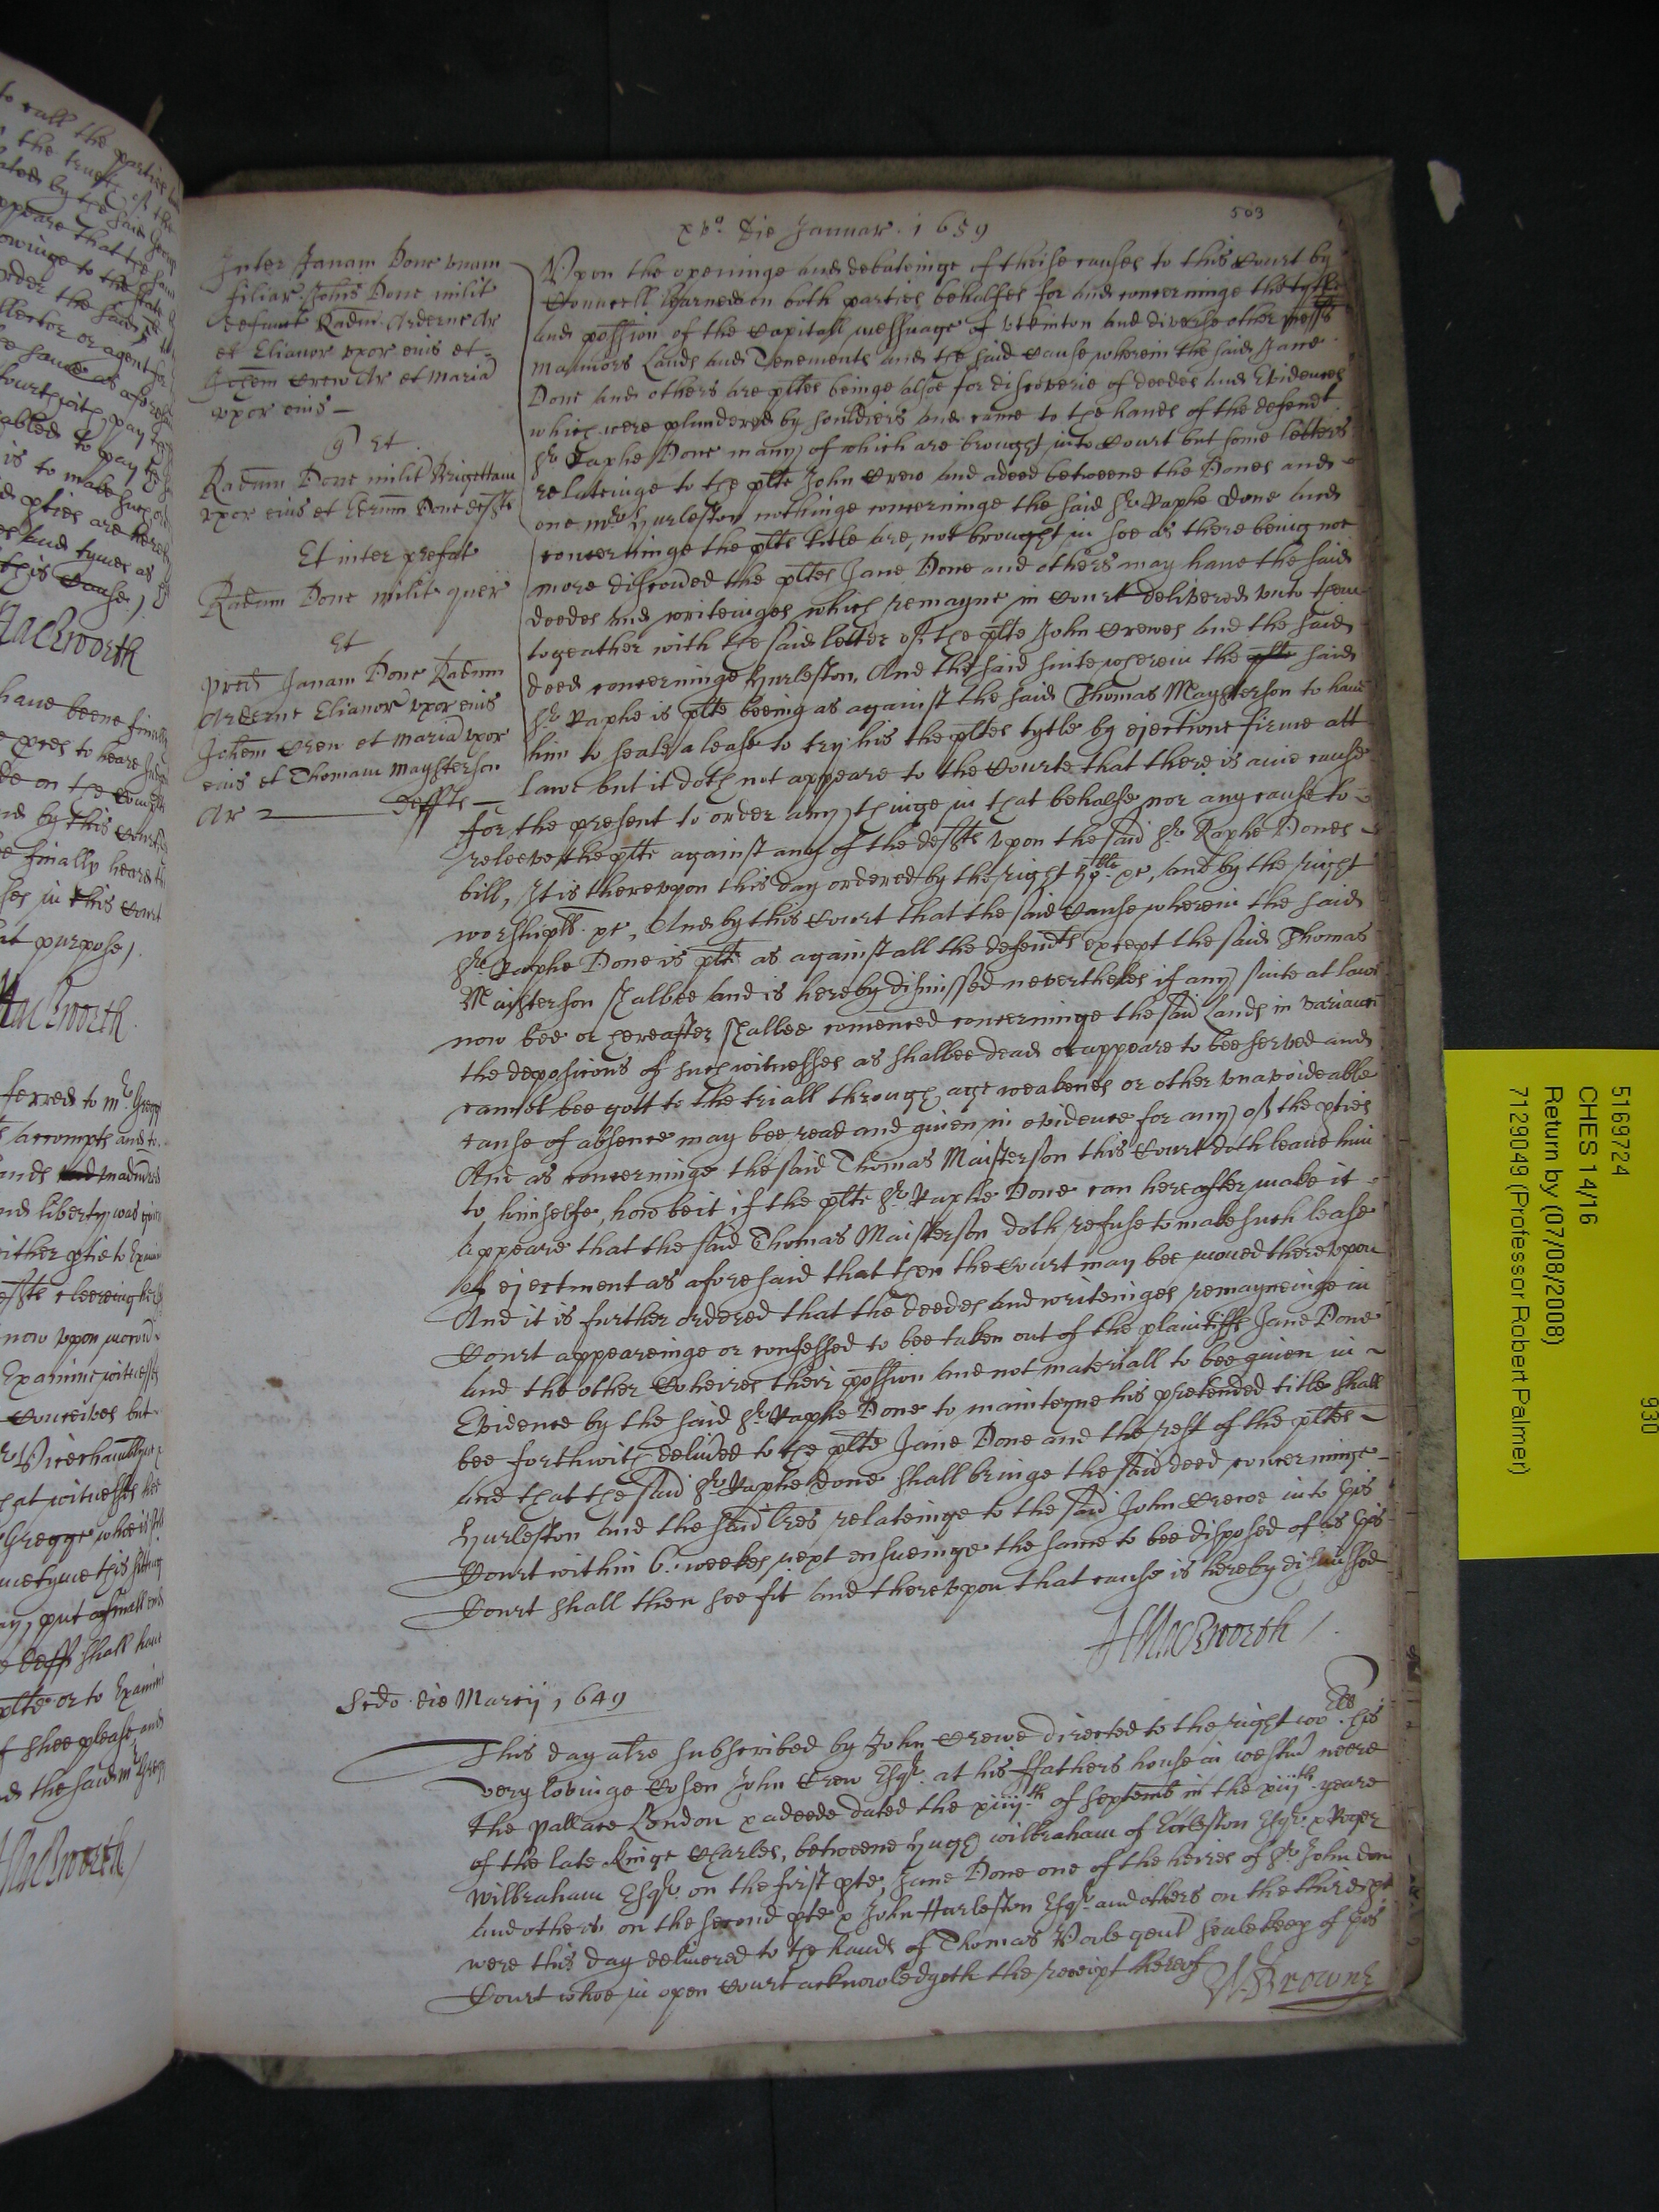 503
xvo. die Januar. 1659
Inter Janam Done unam
filiar. Johis Done milit
defunct Radm. Arderne Ar
et Elianor uxor eius et
Johem Crew Ar et Maria
uxor eius —
q) Et
Radum Done milit Brigettam
uxor eius et Done deffts
Et inter prefat
Radum Done milit quer
Et
pred Janam Done Radum
Arderne Elianor uxor eius
Johem Crew et Maria uxor
eius et Thomam Maysterson
Ar — deffts —
Upon the openinge and debateinge of theise causes to this Court by
Councell learned on both parties behalfes for and concerninge the tytle
and possion of the Capitall messuage of Utkinton and diverse other messs
mannors Lands and Tenements and the said Cause wherein the said Jane
Done and others are pltes beinge alsoe for discoverie of deedes and Evidences
which were plundered by souldiers and came to the hands of the defendt
Sr. Raphe Done many of which are brought into Court but some letters
relateinge to the plte John Crew and a deed betweene the Dones and
one Mr. Hurleston nothinge concerninge the said Sr. Raphe Done and
concerninge the plts title are, not brought in soe as there being noe
more discovded the pltes Jane Done and others may have the said
deedes and writeinges which remayne in Court delivered unto them
togeather with the said letter of the plte John Crewes and the said
deed concerninge Hurleston. And the said suite wherein the plte said
Sr. Raphe is plte beeing as against the said Thomas Maysterson to have
him to seale a lease to try his the pltes tytle by ejectione firme att
lawe but it doth not appeare to the Courte that there is anie cause
for the present to order any thinge in that behalfe nor any cause to
releeve the plte against any of the deffts upon the said Sr. Raphe Dones
bill, It is thereupon this day ordered by the right hoble. xc, and by the right
worshipll. xc, And by this Court that the said Cause wherein the said
Sr. Raphe Done is plte as against all the defendts except the said Thomas
Maisterson shalbee and is hereby dismissed nevertheles if any suite at lawe
now bee or hereafter shalbee comenced concerninge the said Lands in varianc
the deposicons of such witnesses as shalbee dead or appeare to bee served and
cannot bee gott to the triall through age weaknes or other unavoideable
cause of absence may bee read and given in evidence for any of the pties
And as concerninge the said Thomas Maisterson this Court doth leave him
to himselfe, howbeit if the plte Sr. Raphe Done can hereafter make it
appeare that the said Thomas Maisterson doth refuse to make such lease
of ejectment as aforesaid that then the Court may bee moved thereupon
And it is further ordered that the deedes and writeinges remayneinge in
Court appeareinge or confessed to bee taken out of the plaintiffs Jane Done
and the other Coheires their possion and not materiall to bee given in
Evidence by the said Sr. Raphe Done to mainteyne his pretended title shall
bee forthwith delivred to the plte Jane Done and the rest of the pltes
and that the said Sr. Raphe Done shall bringe the said deed concerninge
Hurleston and the said lres relateinge to the said John Crewe into this
Court within 6. weekes next ensueinge the same to bee disposed of as this
Court shall then see fit and thereupon that cause is hereby dismissed
HMackworth
Scdo. die Marcij 1649
This day a lre subscribed by John Crewe directed to the right woll. his
very lovinge Cosen John Crew Esqr. at his ffathers house in westm neere
the pallace London x a deede dated the xiiijth of Septemb in the xiijth yeare
of the late Kinge Charles, betweene Hugh Wilbraham of Esqr. x Roger
Wilbraham Esqr. on the first pte, Jane Done one of the heires of Sr. John Don
and others on the second pte x John Hurleston Esqr. and others on the third pt
were this day delivered to the hands of Thomas gent Sealekeep of this
Court whoe in open Court acknowledgeth the receipt hereof
W. Browne
to call the parties
the truth of the
by the said
appeare that the said
oweinge to the State
order the said
llector or agent for
same as afores
pay
abled to pay
is to make such
pties are here
and tymes as
this Cause,
Mackworth
have beene finally
to heare
on the
by this Court
finally heard
in this Court
at purpose,
Mackworth
ferred to Mr. Gregg
accompts and
liberty was
either ptie to Exam
now upon
Examine witnesses
but
that witnesses
Gregge whoe is
this
put a small
deff shall have
plte or to Examine
if shee please and
the said Mr. Gregg
Mackworth
5169724
CHES 14/16
Return by (07/08/2008)
7129049 (Professor Robert Palmer)
930